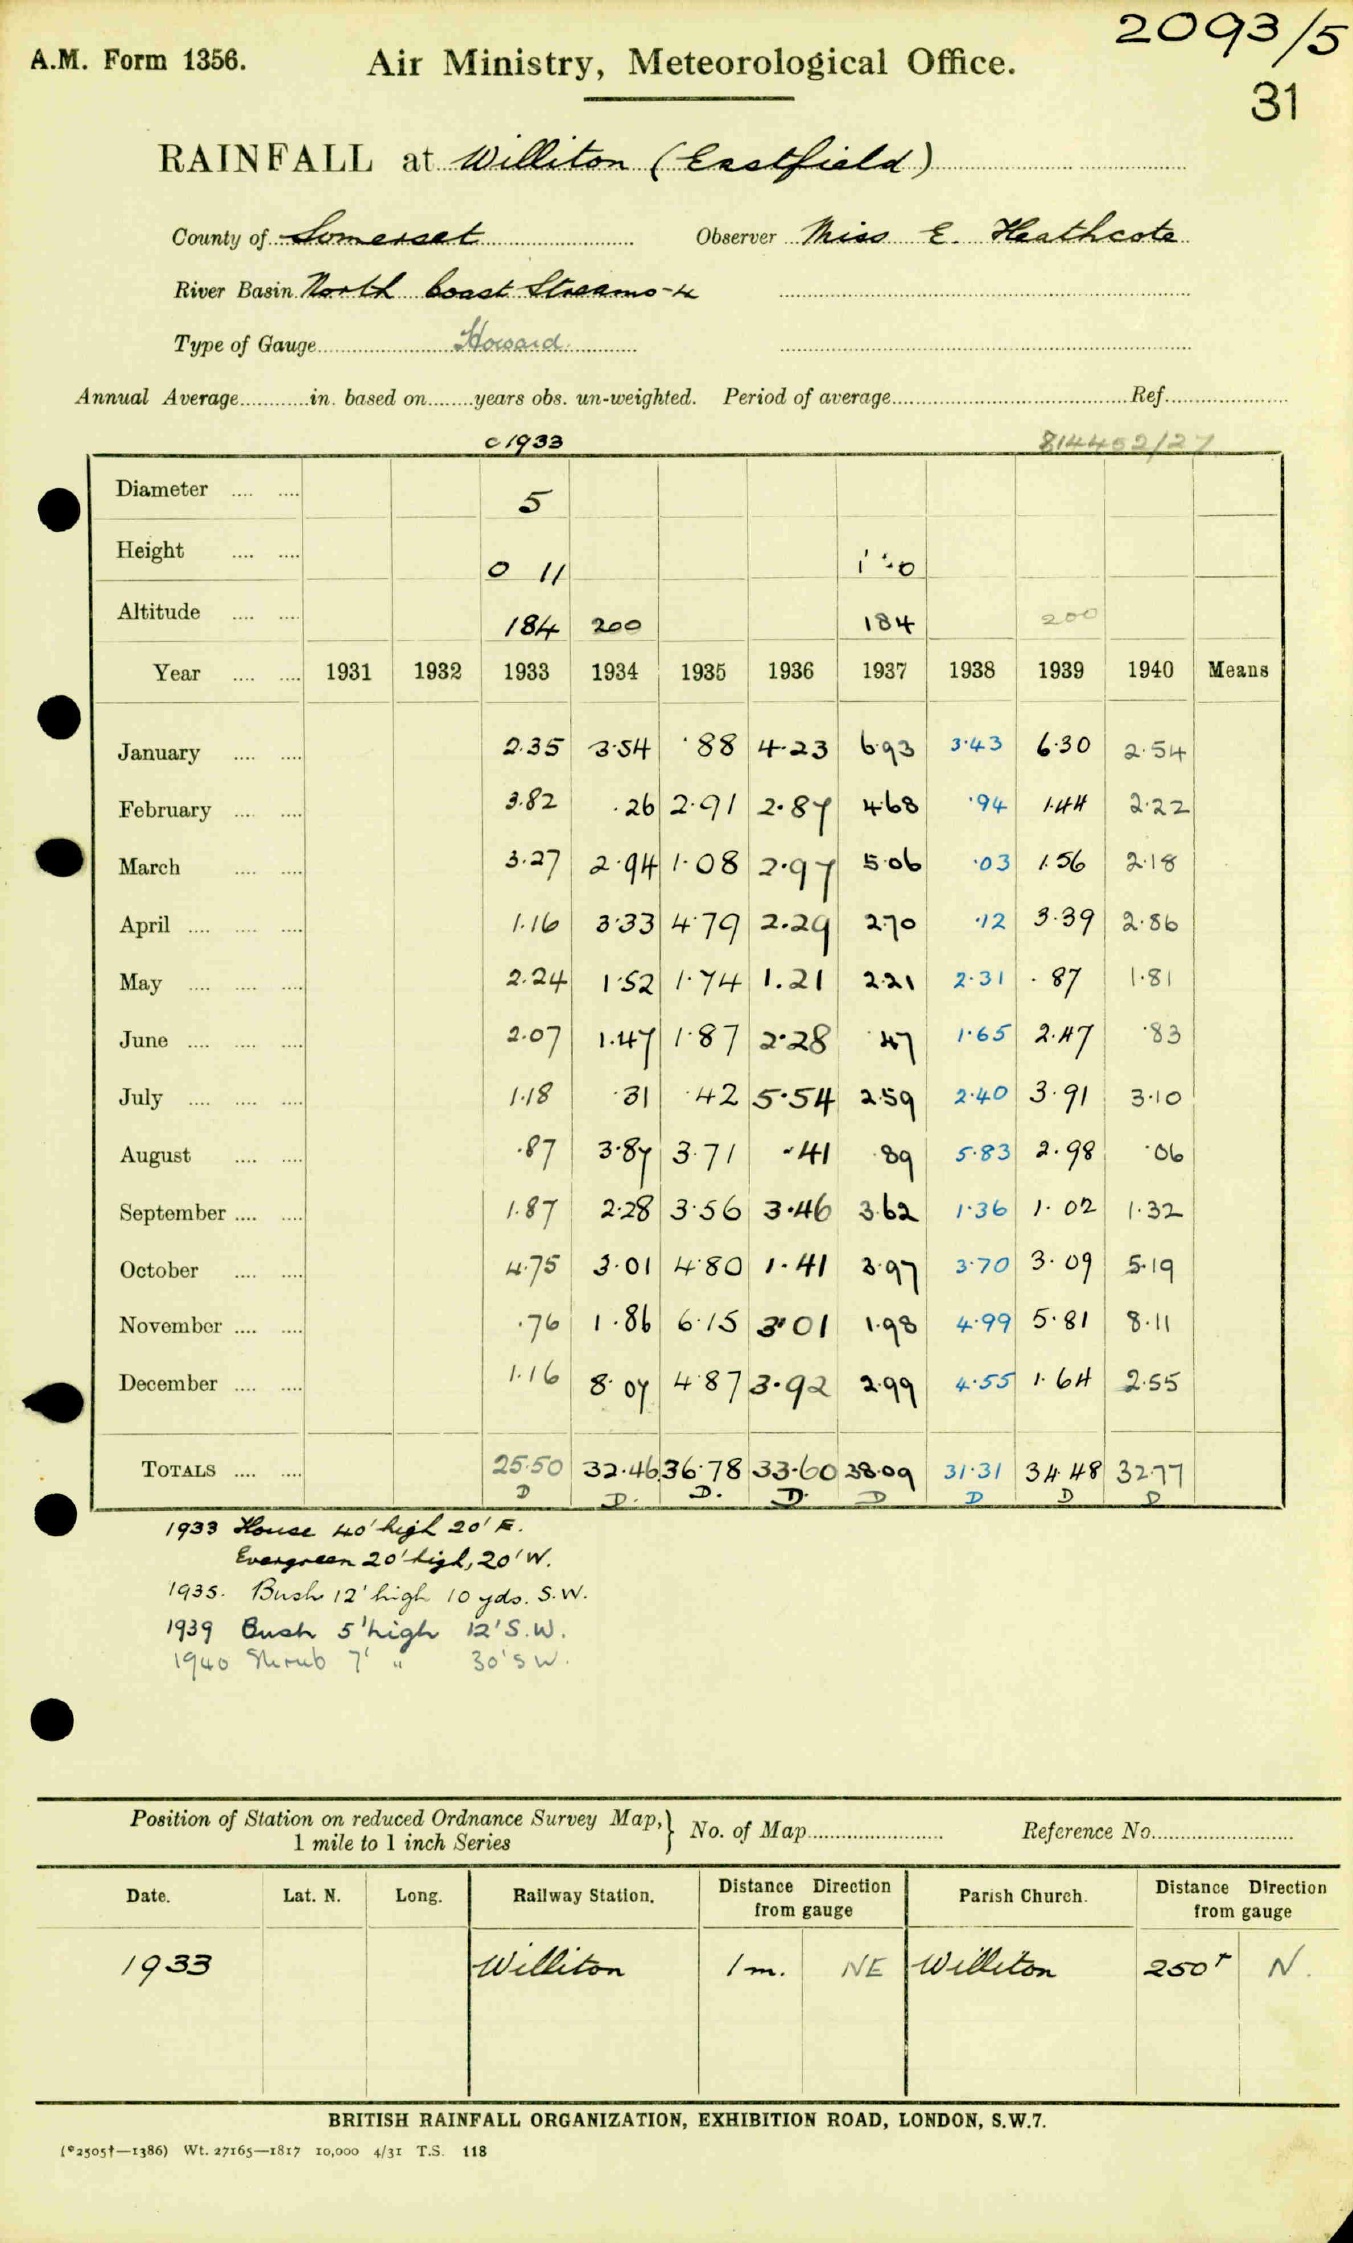 2093/5
A.M. Form 1356. Air Ministry, Meteorological Office.
31
RAINFALL at Williton (Eastfield)
County of Somerset Observer Miss E. Heathcote
River Basin North Coast Streams-4
Type of Gauge Howard
Annual Average in. based on years obs. un-weighted. Period of average Ref.
c 1933 814452/27
Diameter 5
Height 0 11 1' 0
Altitude 184 200 184 200
Year 1931 1932 1933 1934 1935 1936 1937 1938 1939 1940 Means
January 2.35 3.54 .88 4.23 6.93 3.43 6.30 2.54
February 3.82 .26 2.91 2.87 4.68 .94 1.44 2.22
March 3.27 2.94 1.08 2.97 5.06 .03 1.56 2.18
April 1.16 3.33 4.79 2.29 2.70 .12 3.39 2.86
May 2.24 1.52 1.74 1.21 2.21 2.31 .87 1.81
June 2.07 1.47 1.87 2.28 .47 1.65 2.47 .83
July 1.18 .31 .42 5.54 2.59 2.40 3.91 3.10
August .87 3.87 3.71 .41 .89 5.83 2.98 .06
September 1.87 2.28 3.56 3.46 3.62 1.36 1.02 1.32
October 4.75 3.01 4.80 1.41 3.97 3.70 3.09 5.19
November .76 1.86 6.15 3.01 1.98 4.99 5.81 8.11
December 1.16 8.07 4.87 3.92 2.99 4.55 1.64 2.55
TOTALS 25.50 32.46 36.78 33.60 38.09 31.31 34.48 32.77
D D. D. D. D D D D
1933 House 40' high 20' E.
Evergreen 20' high, 20' W.
1935. Bush 12' high 10 yds. S.W.
1939 Bush 5' high 12' S.W.
1940 Shrub 7' " 30' S W.
Position of Station on reduced Ordnance Survey Map, } No. of Map Reference No.
1 mile to 1 inch Series
Date. Lat. N. Long. Railway Station. Distance Direction from gauge Parish Church. Distance Direction from gauge
1933 Williton 1 m. NE Williton 250 N.
BRITISH RAINFALL ORGANIZATION, EXHIBITION ROAD, LONDON, S.W.7.
(*2505†—1386) Wt. 27165—1817 10,000 4/31 T.S. 118